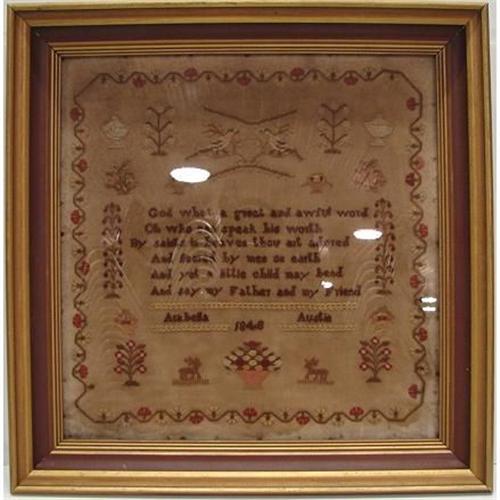 God what a great and awful word
Oh who speak his worth
By saints in heaven thou art adored
And by men on earth
And yet a little child may bend
And say my Father and my Friend
Arabella Austin
1848